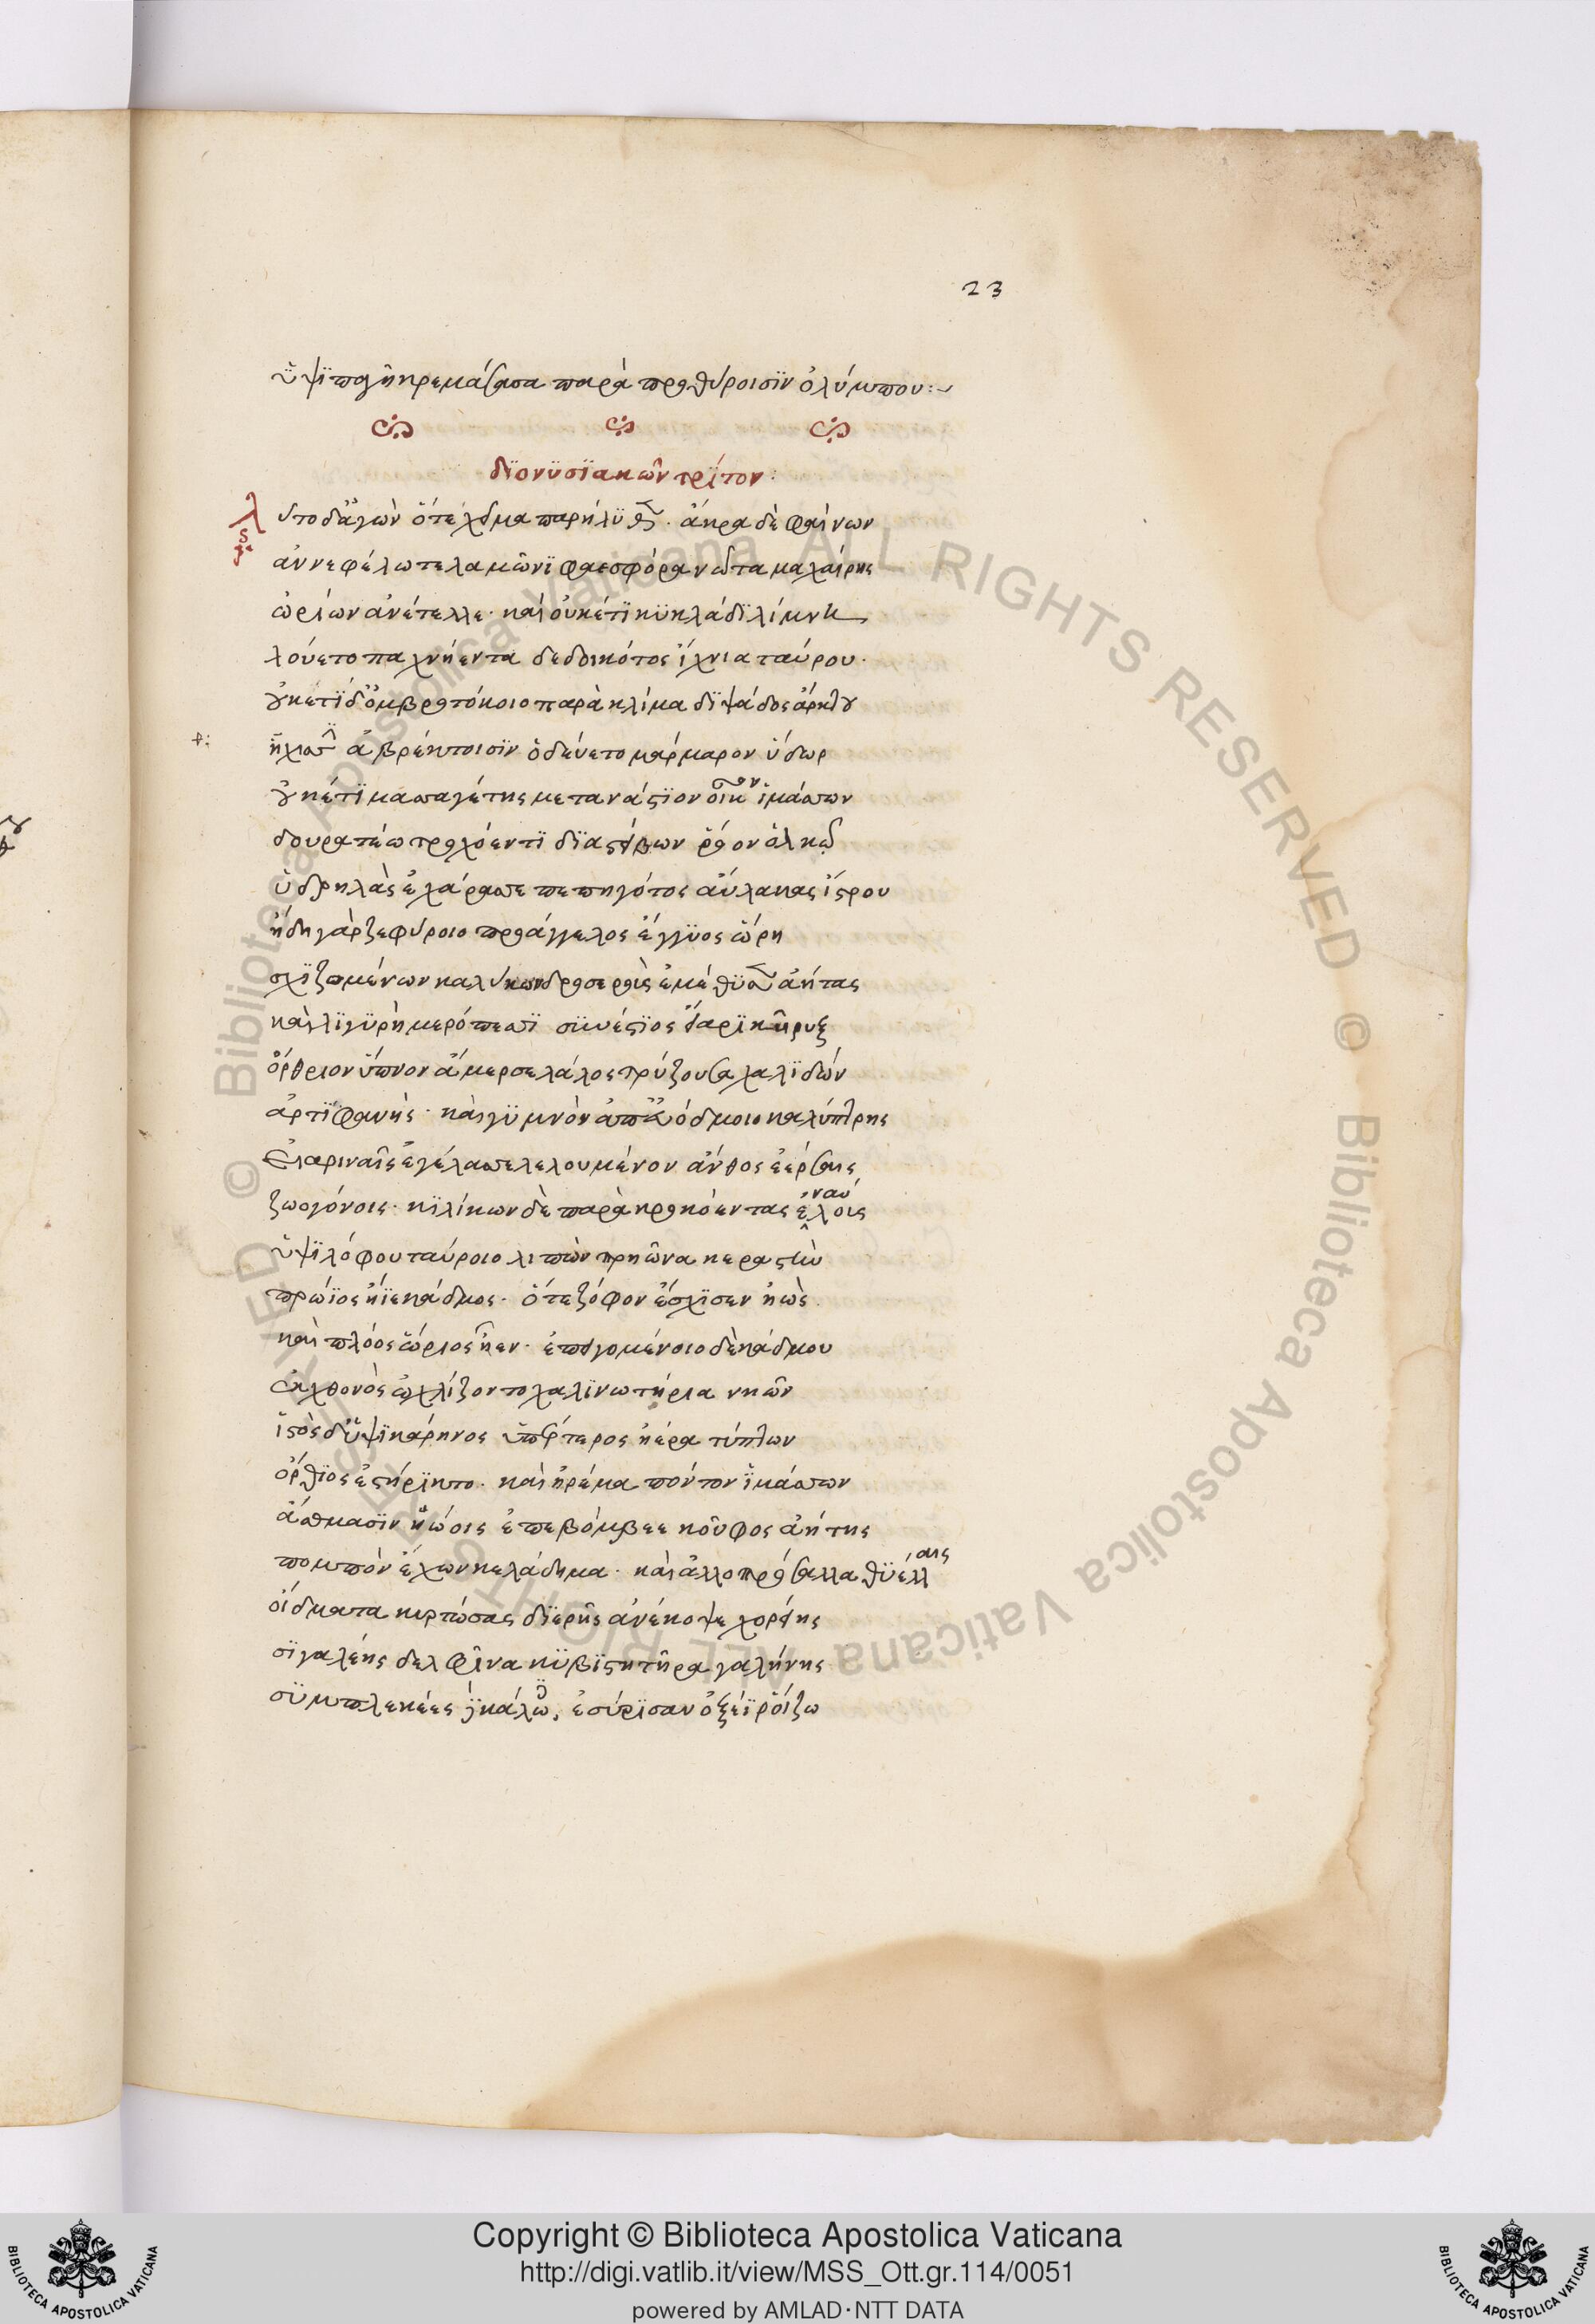 23
ὑψιπαγῆ κρεμάσασα παρὰ προθύροισϊν ὀλύμπου:~
δϊονϋσϊακῶν τρίτον·
λ
ς
γʹ
ῦτο δ' ἀγὼν ὅτε χεῖμα παρήλϋθε. ἄκρα δὲ φαίνων
ἀννεφέλω τελαμῶνϊ φαεσφόρα νῶτα μαχαίρης
ὠρίων ἀνέτελλε· καὶ οὐκέτϊ κϋκλάδϊ λίμνη
λούετο παχνήεντα δεδοικότος ἴχνια ταύρου·
οὐκετϊ δ' ὀμβροτόκοιο παρὰ κλίμα δϊψάδος ἄρκτου
ἴχνεσϊν ἀβρέκτοισϊν ὁδεύετο μάρμαρον ὕδωρ
οὐκέτϊ μασσαγέτης μετανάστϊον οἶκον ἱμάσσων
δουρατέω τροχόεντϊ δϊαστείβων ῥόον ὁλκῶ
ὑδρηλὰς ἐχάραξε πεπηγότος αὔλακας ἴστρου
ἤδη γὰρ ζεφύροιο προάγγελος ἔγγϋος ὥρη
σχϊζομένων καλύκων δροσεροὺς ἐμέθϋσσεν ἀήτας
καὶ λϊγϋρὴ μερόπεσσϊ σϋνέστϊος εἴαρϊ κῆρυξ
ὄρθριον ὕπνον ἄμερσε λάλος τρύζουσα χελϊδών
ἀρτϊφανής· καὶ γϋμνὸν ἀπ' εὐόδμοιο καλύπτρης
εἰαριναῖς ἐγέλασσε λελουμένον ἄνθος ἐέρσαις
ζωογόνοις· κϊλίκων δὲ παρὰ κροκόεντας ἐναύλοις
ὑψϊλόφου ταύροιο λιπὼν πρηῶνα κεραστὴν
πρώϊος ἤϊε κάδμος· ὅτε ζόφον ἔσχϊσεν ἠώς.
καὶ πλόος ὥριος ἦεν· ἐπειγομένοιο δὲ κάδμου
ἐκ χθονὸς ὠχλίζοντο χαλϊνωτήρια νηῶν
ἱστὸς δ' ὑψϊκάρηνος ὑπέρτερος ἠέρα τύπτων
ὄρθϊος ἐστήρϊκτο· καὶ ἠρέμα πόντον ἱμάσσων
ἄσθμασϊν ἠώοις ἐπεβόμβεε κοῦφος ἀήτης
πομπὸν ἔχων κελάδημα· καὶ ἀλλοπρόσαλλα θϋέλλαις
οἴδματα κυρτώσας δϊερῆς ἀνέκοψε χορείης
σϊγαλέης δελφῖνα κϋβϊστητῆρα γαλήνης
σϋμπλεκέες καλω, ἐσύρϊσαν ὀξέϊ ῥοίζω
Copyright © Biblioteca Apostolica Vaticana
http://digi.vatlib.it/view/MSS_Ott.gr.114/0051
powered by AMLAD·NTT DATA
BIBLIOTECA APOSTOLICA VATICANA
BIBLIOTECA APOSTOLICA VATICANA
© Biblioteca Apostolica Vaticana ALL RIGHTS RESERVED © Biblioteca Apostolica Vaticana ALL RIGHTS RESERVED